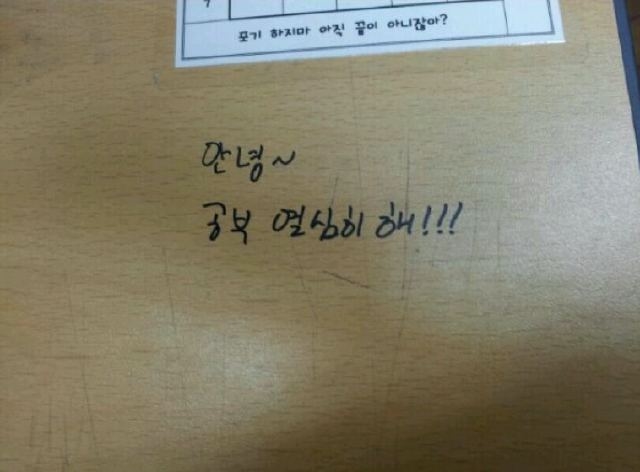 7
포기 하지마 아직 끝이 아니잖아?
안녕~
공부 열심히 해!!!